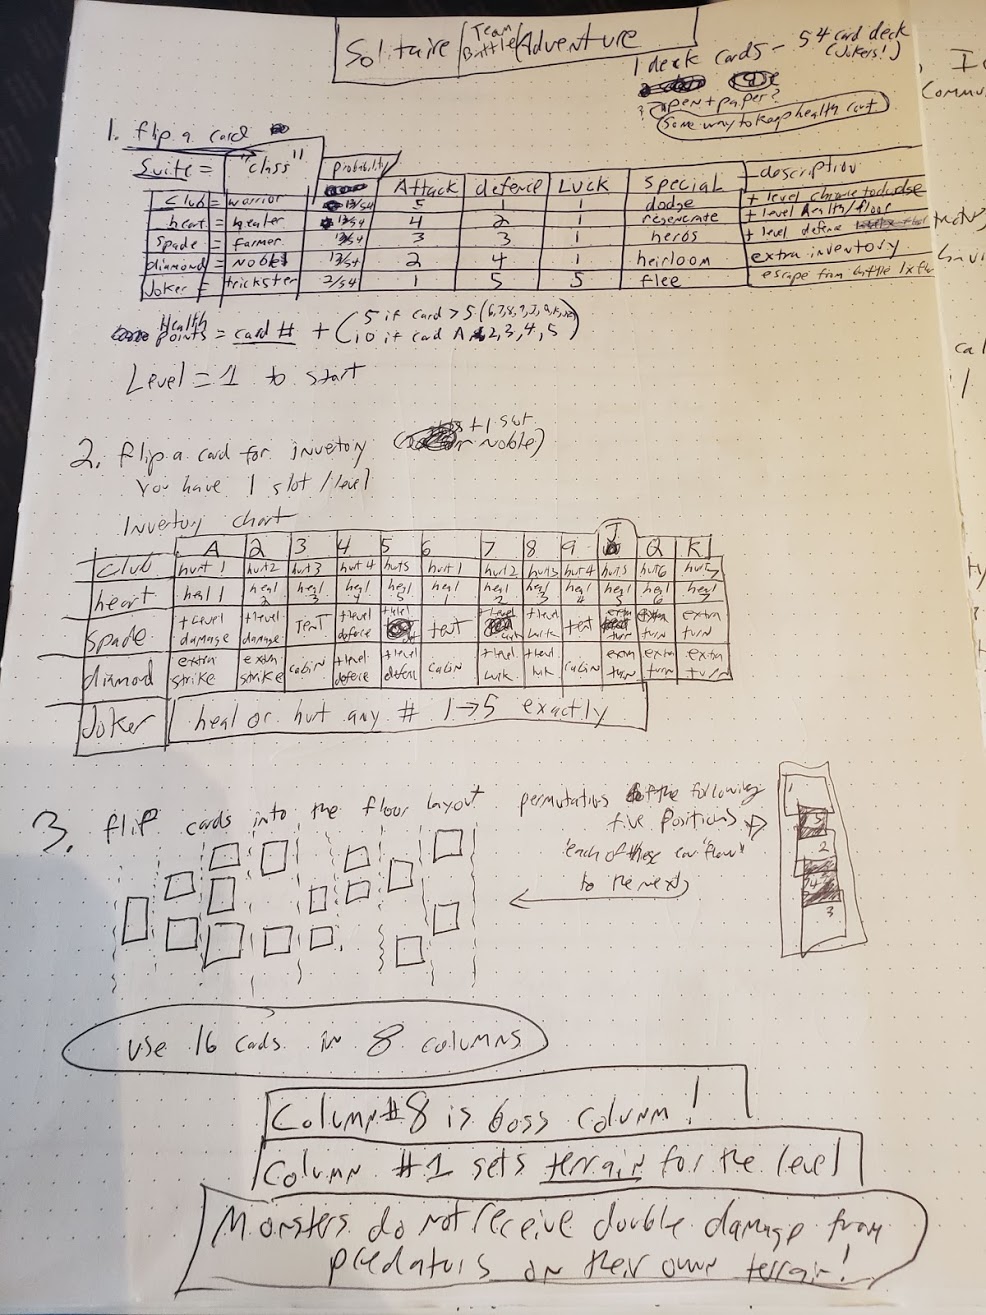 Solitaire / Team Battle / Adventure
1 deck cards - 54 card deck
(Jokers!)
? pen + paper?
Some way to keep health count
1. flip a card
Suite = "class" Probability Attack defence Luck Special description
Club = warrior 13/54 5 1 1 dodge + level chance to dodge
heart = healer 13/54 4 2 1 regenerate + level health/floor
Spade = farmer 13/54 3 3 1 herbs + level defence
diamond = noble 13/54 2 4 1 heirloom extra inventory
Joker = trickster 2/54 1 5 5 flee escape from battle 1x
Health Points = card # + (5 if card > 5 (6,7,8,9,J,Q,K,
10 if card A 2, 3, 4, 5)
Level = 1 to start
2. flip a card for invetory
+ 1 slot
noble)
You have 1 slot / level
Inventory chart
A 2 3 4 5 6 7 8 9 J Q K
Club hurt 1 hurt 2 hurt 3 hurt 4 hurt 5 hurt 1 hurt 2 hurt 3 hurt 4 hurt 5 hurt 6 hurt 7
heart heal 1 heal 2 heal 3 heal 4 heal 5 heal 1 heal 2 heal 3 heal 4 heal 5 heal 6 heal 7
Spade + Level damage + Level damage Tent + level defece + level tent + level luck + level luck tent extra turn extra turn extra turn
diamond extra strike extra strike cabin + level defece + level defece cabin + level luck + level luck cabin extra turn extra turn extra turn
Joker heal or hurt any # 1→5 exactly
3. flip cards into the floor layout
permutations of the following
five positions
"each of these can "flow"
to the next)
1
5
2
4
3
Use 16 cads in 8 columns
Column #8 is boss column!
Column #1 sets terrain for the level
Monsters do not receive double damage from
predators on their own terrain!